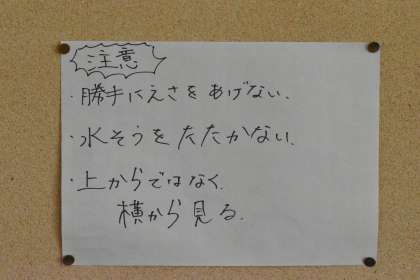 注意
・勝手にえさをあげない.
・水そうをたたかない.
・上からではなく.
横から見る.